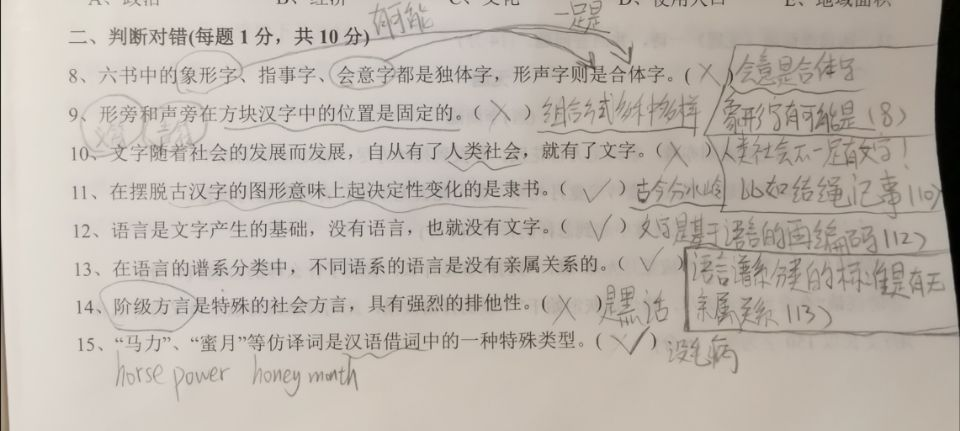 A、政治 B、经济 C、文化 D、使用人口 E、地域面积
有可能 一定是
二、判断对错(每题 1 分，共 10 分)
8、六书中的象形字、指事字、会意字都是独体字，形声字则是合体字。( × ) 会意是合体字
象形字有可能是(8)
9、形旁和声旁在方块汉字中的位置是固定的。( × ) 组合方式多种多样
10、文字随着社会的发展而发展，自从有了人类社会，就有了文字。( × ) 人类社会不一定有文字！
比如结绳记事(10)
11、在摆脱古汉字的图形意味上起决定性变化的是隶书。( √ ) 古今分水岭
12、语言是文字产生的基础，没有语言，也就没有文字。( √ ) 文字是基于语言的再编码(12)
13、在语言的谱系分类中，不同语系的语言是没有亲属关系的。( √ ) 语言谱系分类的标准是有无
亲属关系(13)
14、阶级方言是特殊的社会方言，具有强烈的排他性。( × ) 是黑话
15、“马力”、“蜜月”等仿译词是汉语借词中的一种特殊类型。( √ ) 没毛病
horse power honey month